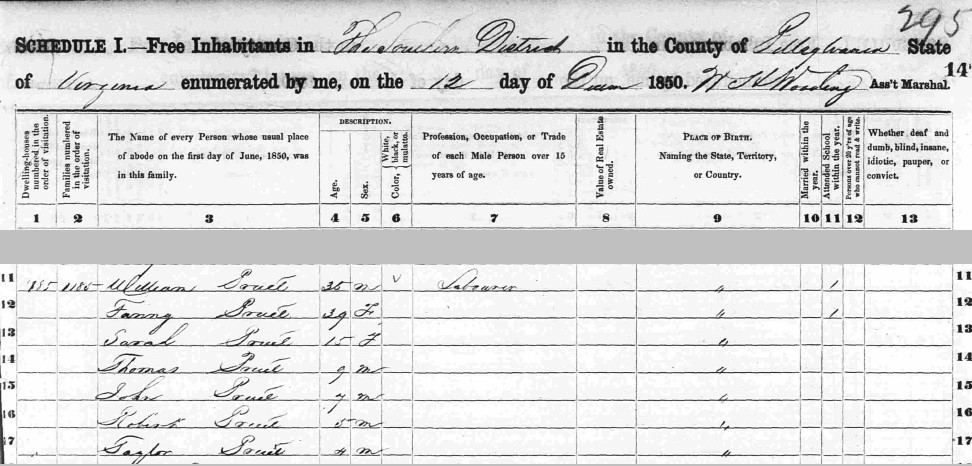 295
SCHEDULE I.—Free Inhabitants in The Southern District in the County of Pittsylvania State
of Virginia enumerated by me, on the 12 day of 1850. W H Wooding Ass't Marshal.
14
Dwelling-houses numbered in the order of visitation.
Families numbered in the order of visitation.
The Name of every Person whose usual place of abode on the first day of June, 1850, was in this family.
DESCRIPTION.
Age.
Sex.
Color, White, black, or mulatto.
Profession, Occupation, or Trade of each Male Person over 15 years of age.
Value of Real Estate owned.
PLACE OF BIRTH. Naming the State, Territory, or Country.
Married within the year.
Attended School within the year.
Persons over 20 y'rs of age who cannot read & write.
Whether deaf and dumb, blind, insane, idiotic, pauper, or convict.
1 2 3 4 5 6 7 8 9 10 11 12 13
11 1185 William Pruit 35 m Labourer " 1 11
12 Fanny Pruit 39 F " 1 12
13 Sarah Pruit 15 F " 13
14 Thomas Pruit 9 m " 14
15 John Pruit 7 m " 15
16 Robert Pruit 5 m " 16
17 Taylor Pruit 4 m " 17